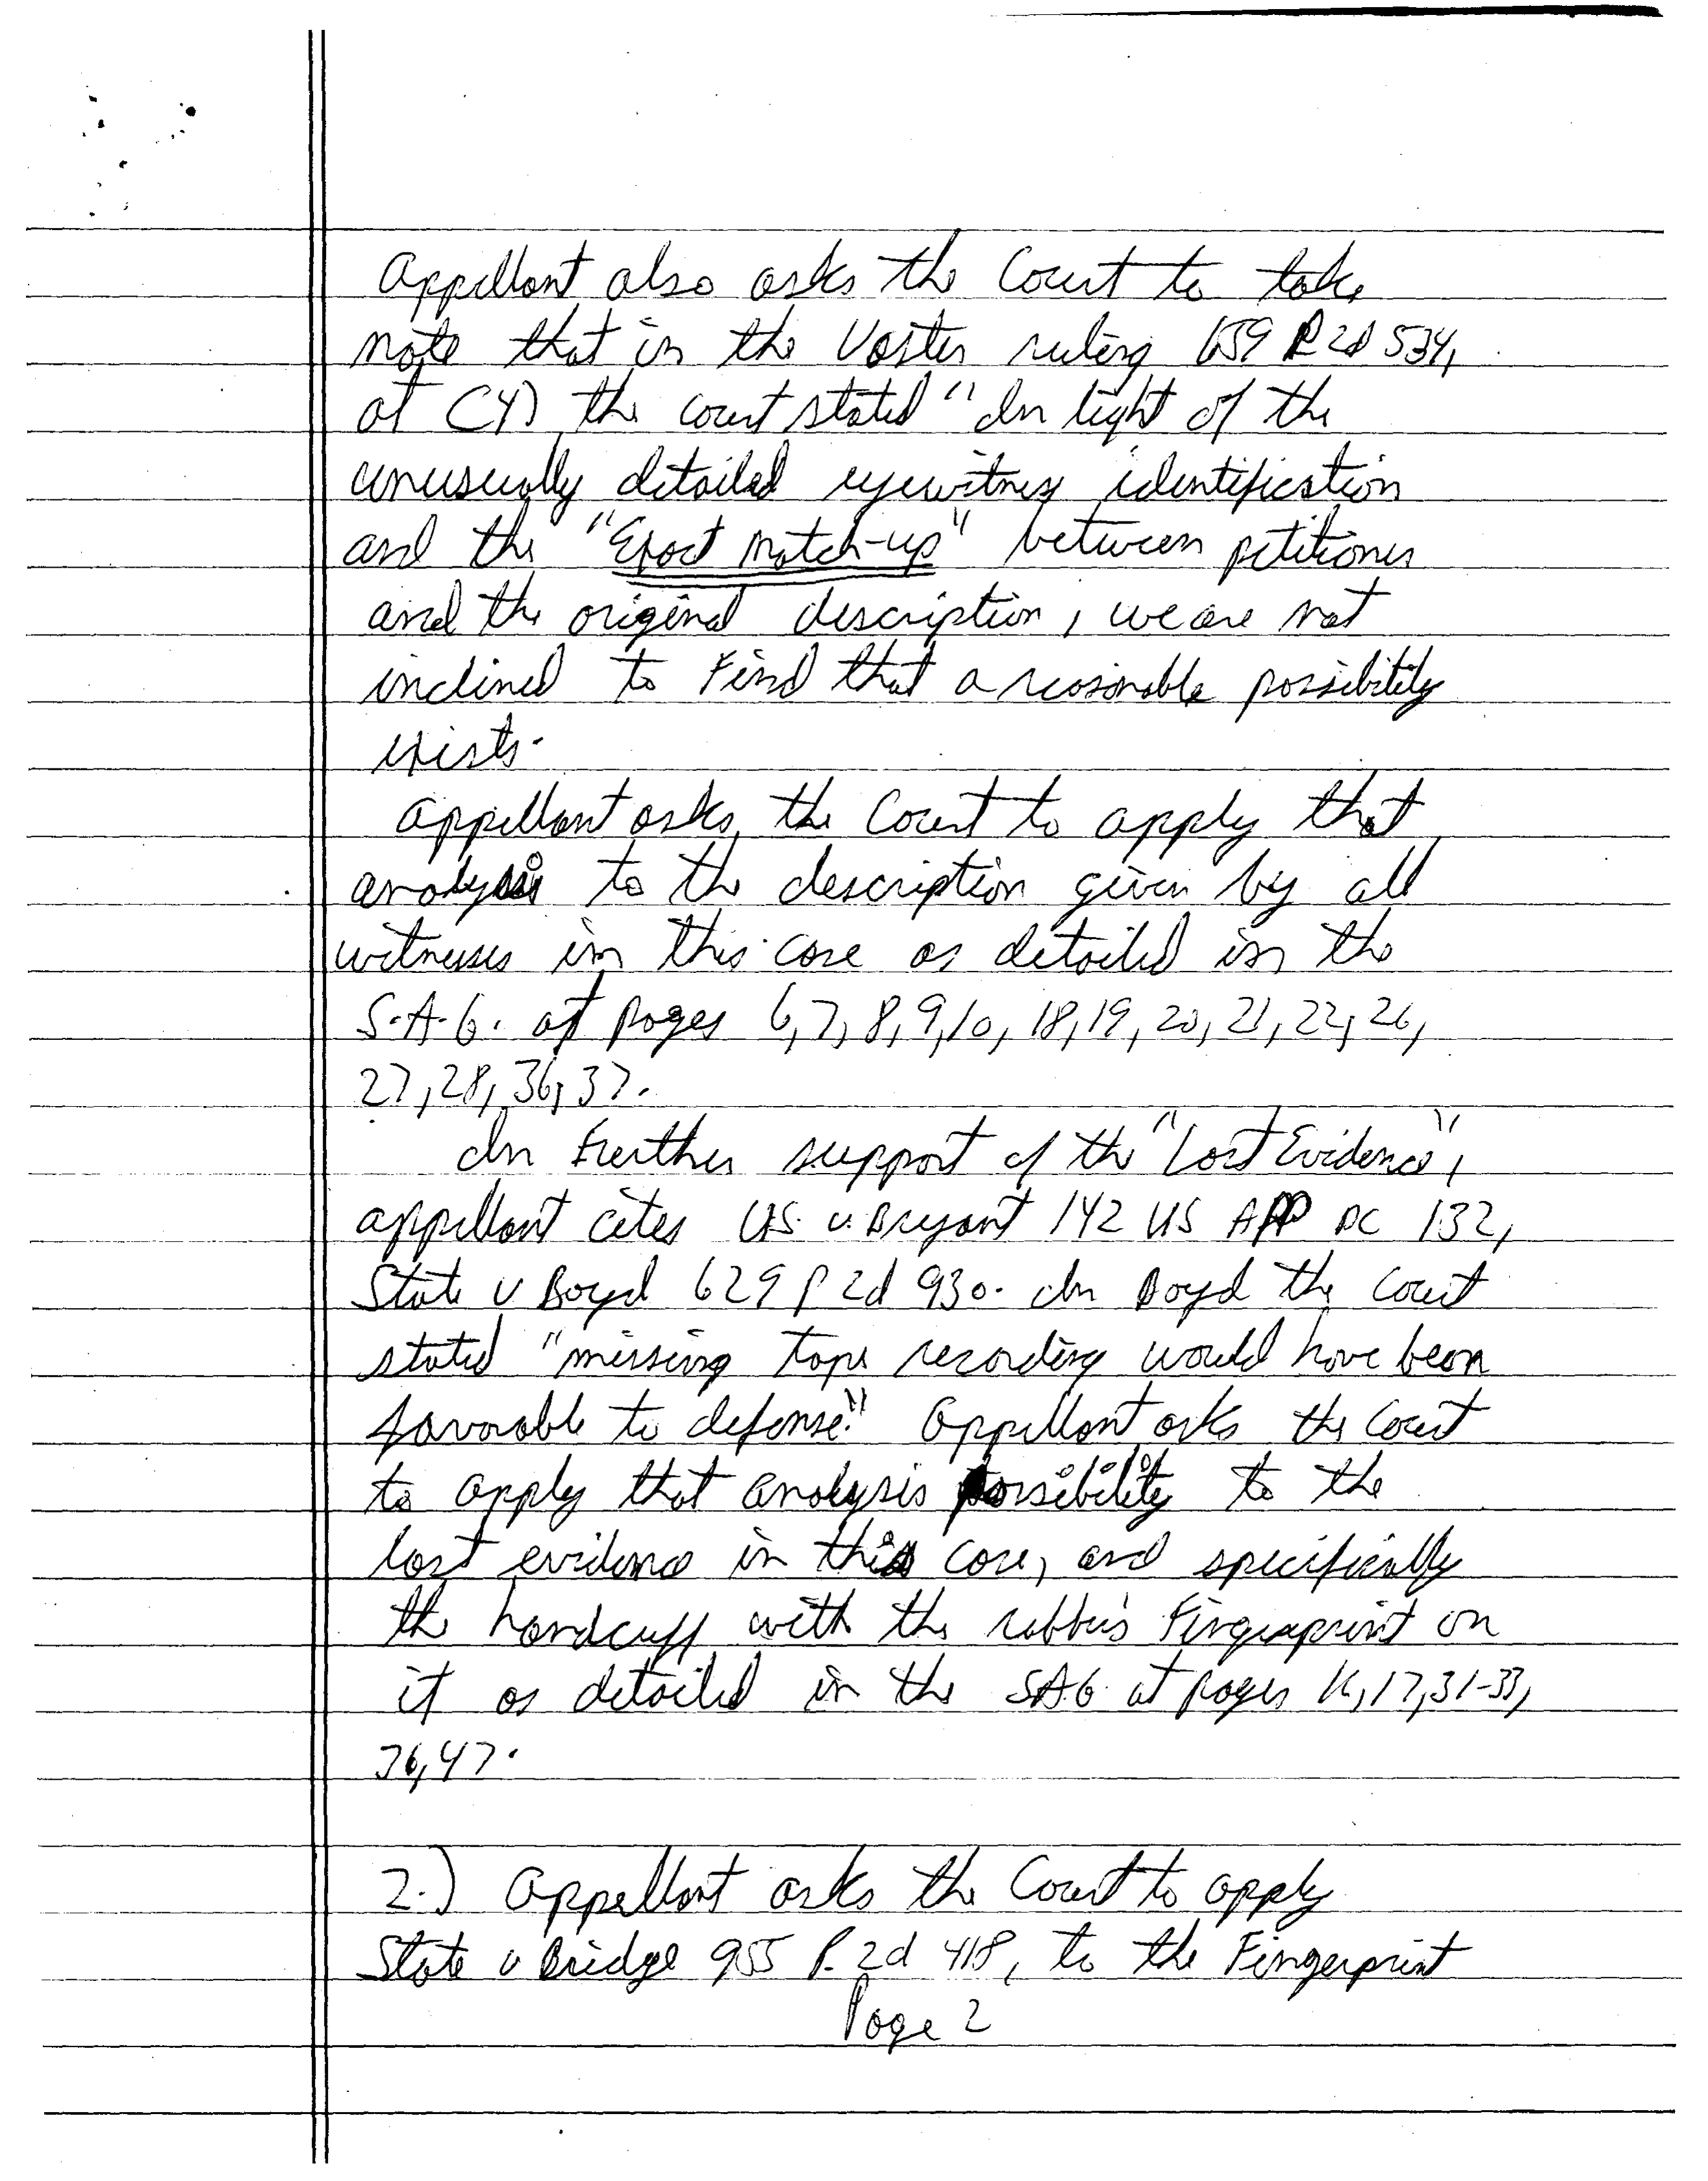 Appellant also asks the Court to take
note that in the Vaster ruling 659 P 2d 534,
at (4) the court stated "In light of the
unusually detailed eyewitness identification
and the "Exact match-up" between petitioner
and the original description, we are not
inclined to find that a reasonable possibility
exists.
Appellant asks the Court to apply that
analysis to the description given by all
witnesses in this case as detailed in the
S.A.G. at pages 6,7,8,9,10,18,19,20,21,22,26,
27,28,36,37.
In Further support of the "Lost Evidence",
appellant cites US v. Bryant 142 US APP DC 132,
State v Boyd 629 P 2d 930. In Boyd the Court
stated "missing tape recording would have been
favorable to defense." Appellant asks the Court
to apply that analysis possibility to the
lost evidence in this case, and specifically
the handcuff with the robber's Fingerprint on
it as detailed in the SAG at pages 16,17,31-33,
36,47.
2.) Appellant asks the Court to apply
State v Bridge 955 P. 2d 418, to the Fingerprint
Page 2